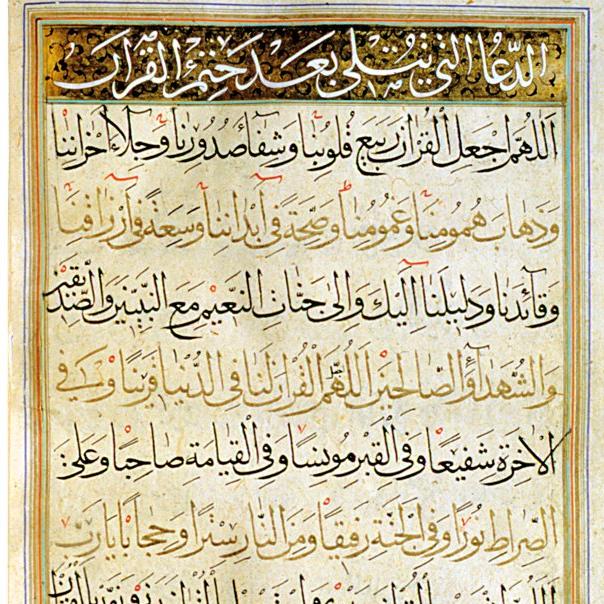 الدعا التي يتلى بعد ختم القرآن
اللهم اجعل القرآن ربيع قلوبنا وشفآء صدورنا وجلآء احزاننا
وذهاب همومنا وغمومنا وصحة في أبداننا وسعة في أرزاقنا
وقآئدنا ودليلنا اليك والى جنات النعيم مع النبيين والصديقين
والشهدآء والصالحين اللهم اجعل القرآن لنا في الدنيا قرينا وفي
الاخرة شفيعا وفي القبر مونسا وفي القيامة صاحبا وعلى
الصراط نورا وفي الجنة رفيقا ومن النار سترا وحجابا يارب